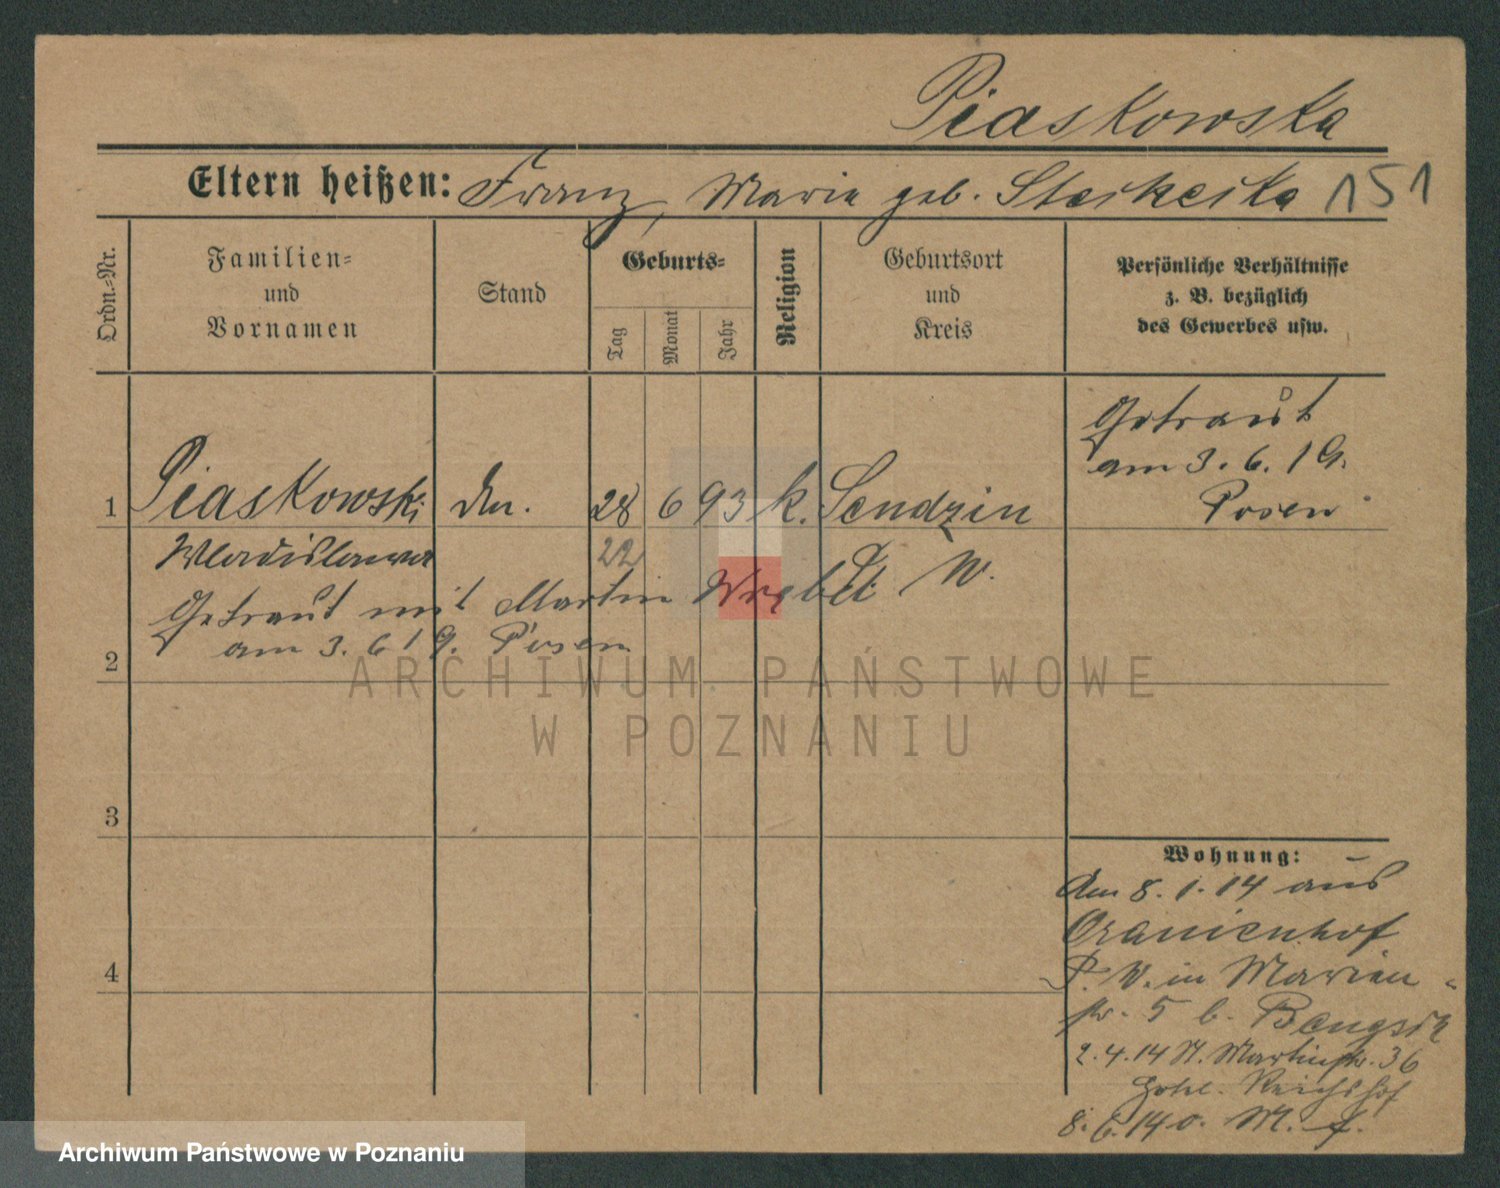 Piaskowska
Eltern heißen: Franz, Marie geb. 151
Ordn.-Nr.
Familien-
und
Vornamen
Stand
Geburts-
Tag
Monat
Jahr
Religion
Geburtsort
und
Kreis
Persönliche Verhältnisse
z. B. bezüglich
des Gewerbes usw.
Getraut
am 3. 6. 19.
Posen
1 Piaskowski 28 6 93 k. Sendzin
Wladislawa 22
Getraut mit Martin
am 3. 6 19. Posen
2
3
4
Wohnung:
Am 8. 1. 14 aus
Oranienhof
P. W. in Marien-
str. 5 b.
2. 4. 14 St. Martinstr. 36
Hotel Reichshof
8. 6. 14 o.
ARCHIWUM PAŃSTWOWE
W POZNANIU
Archiwum Państwowe w Poznaniu